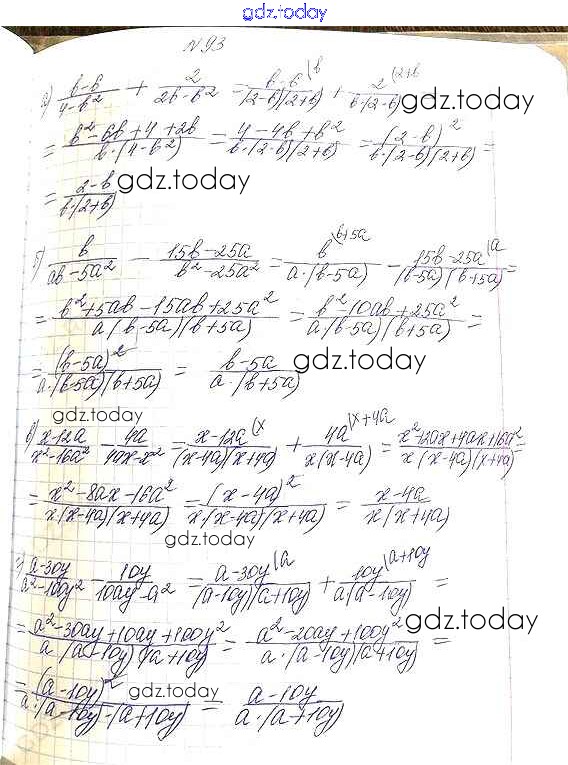 gdz.today
N 93
а) (b-6)/(4-b²) + 2/(2b-b²) = (b-6)/((2-b)(2+b)) \b + 2/(b·(2-b)) \2+b gdz.today
= (b²-6b+4+2b)/(b·(4-b²)) = (4-4b+b²)/(b·(2-b)(2+b)) = (2-b)²/(b·(2-b)(2+b)) =
= (2-b)/(b·(2+b)) gdz.today
б) b/(ab-5a²) - (15b-25a)/(b²-25a²) = b/(a·(b-5a)) \b+5a - (15b-25a)/((b-5a)(b+5a)) \a =
= (b²+5ab-15ab+25a²)/(a(b-5a)(b+5a)) = (b²-10ab+25a²)/(a(b-5a)(b+5a)) =
= (b-5a)²/(a·(b-5a)(b+5a)) = (b-5a)/(a·(b+5a)) gdz.today
gdz.today
в) (x-12a)/(x²-16a²) - 4a/(4ax-x²) = (x-12a)/((x-4a)(x+4a)) \x + 4a/(x(x-4a)) \x+4a = (x²-12ax+4ax+16a²)/(x(x-4a)(x+4a)) =
= (x²-8ax-16a²)/(x(x-4a)(x+4a)) = (x-4a)²/(x·(x-4a)(x+4a)) = (x-4a)/(x(x+4a))
gdz.today
г) (a-30y)/(a²-100y²) - 10y/(10ay-a²) = (a-30y)/((a-10y)(a+10y)) \a + 10y/(a(a-10y)) \a+10y =
= (a²-30ay+10ay+100y²)/(a·(a-10y)(a+10y)) = (a²-20ay+100y²)/(a·(a-10y)(a+10y)) = gdz.today
= (a-10y)²/(a·(a-10y)·(a+10y)) = (a-10y)/(a·(a+10y)) gdz.today